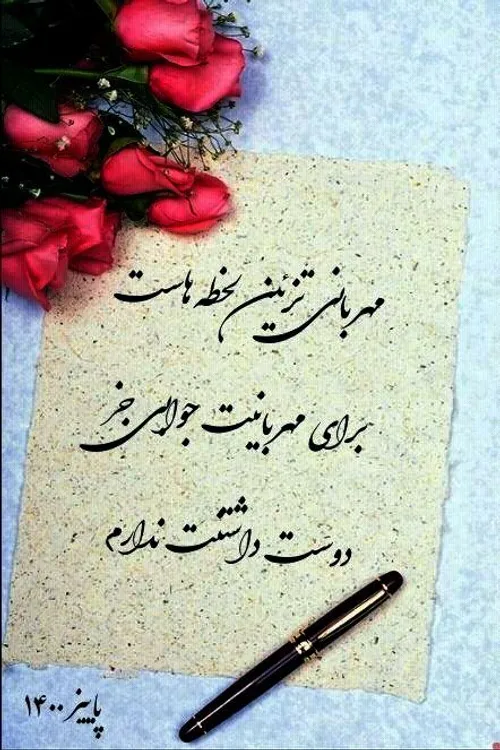 مهربانی تزئین لحظه هاست
برای مهربانیت جوابی جز
دوست داشتنت ندارم
پاییز ۱۴۰۰